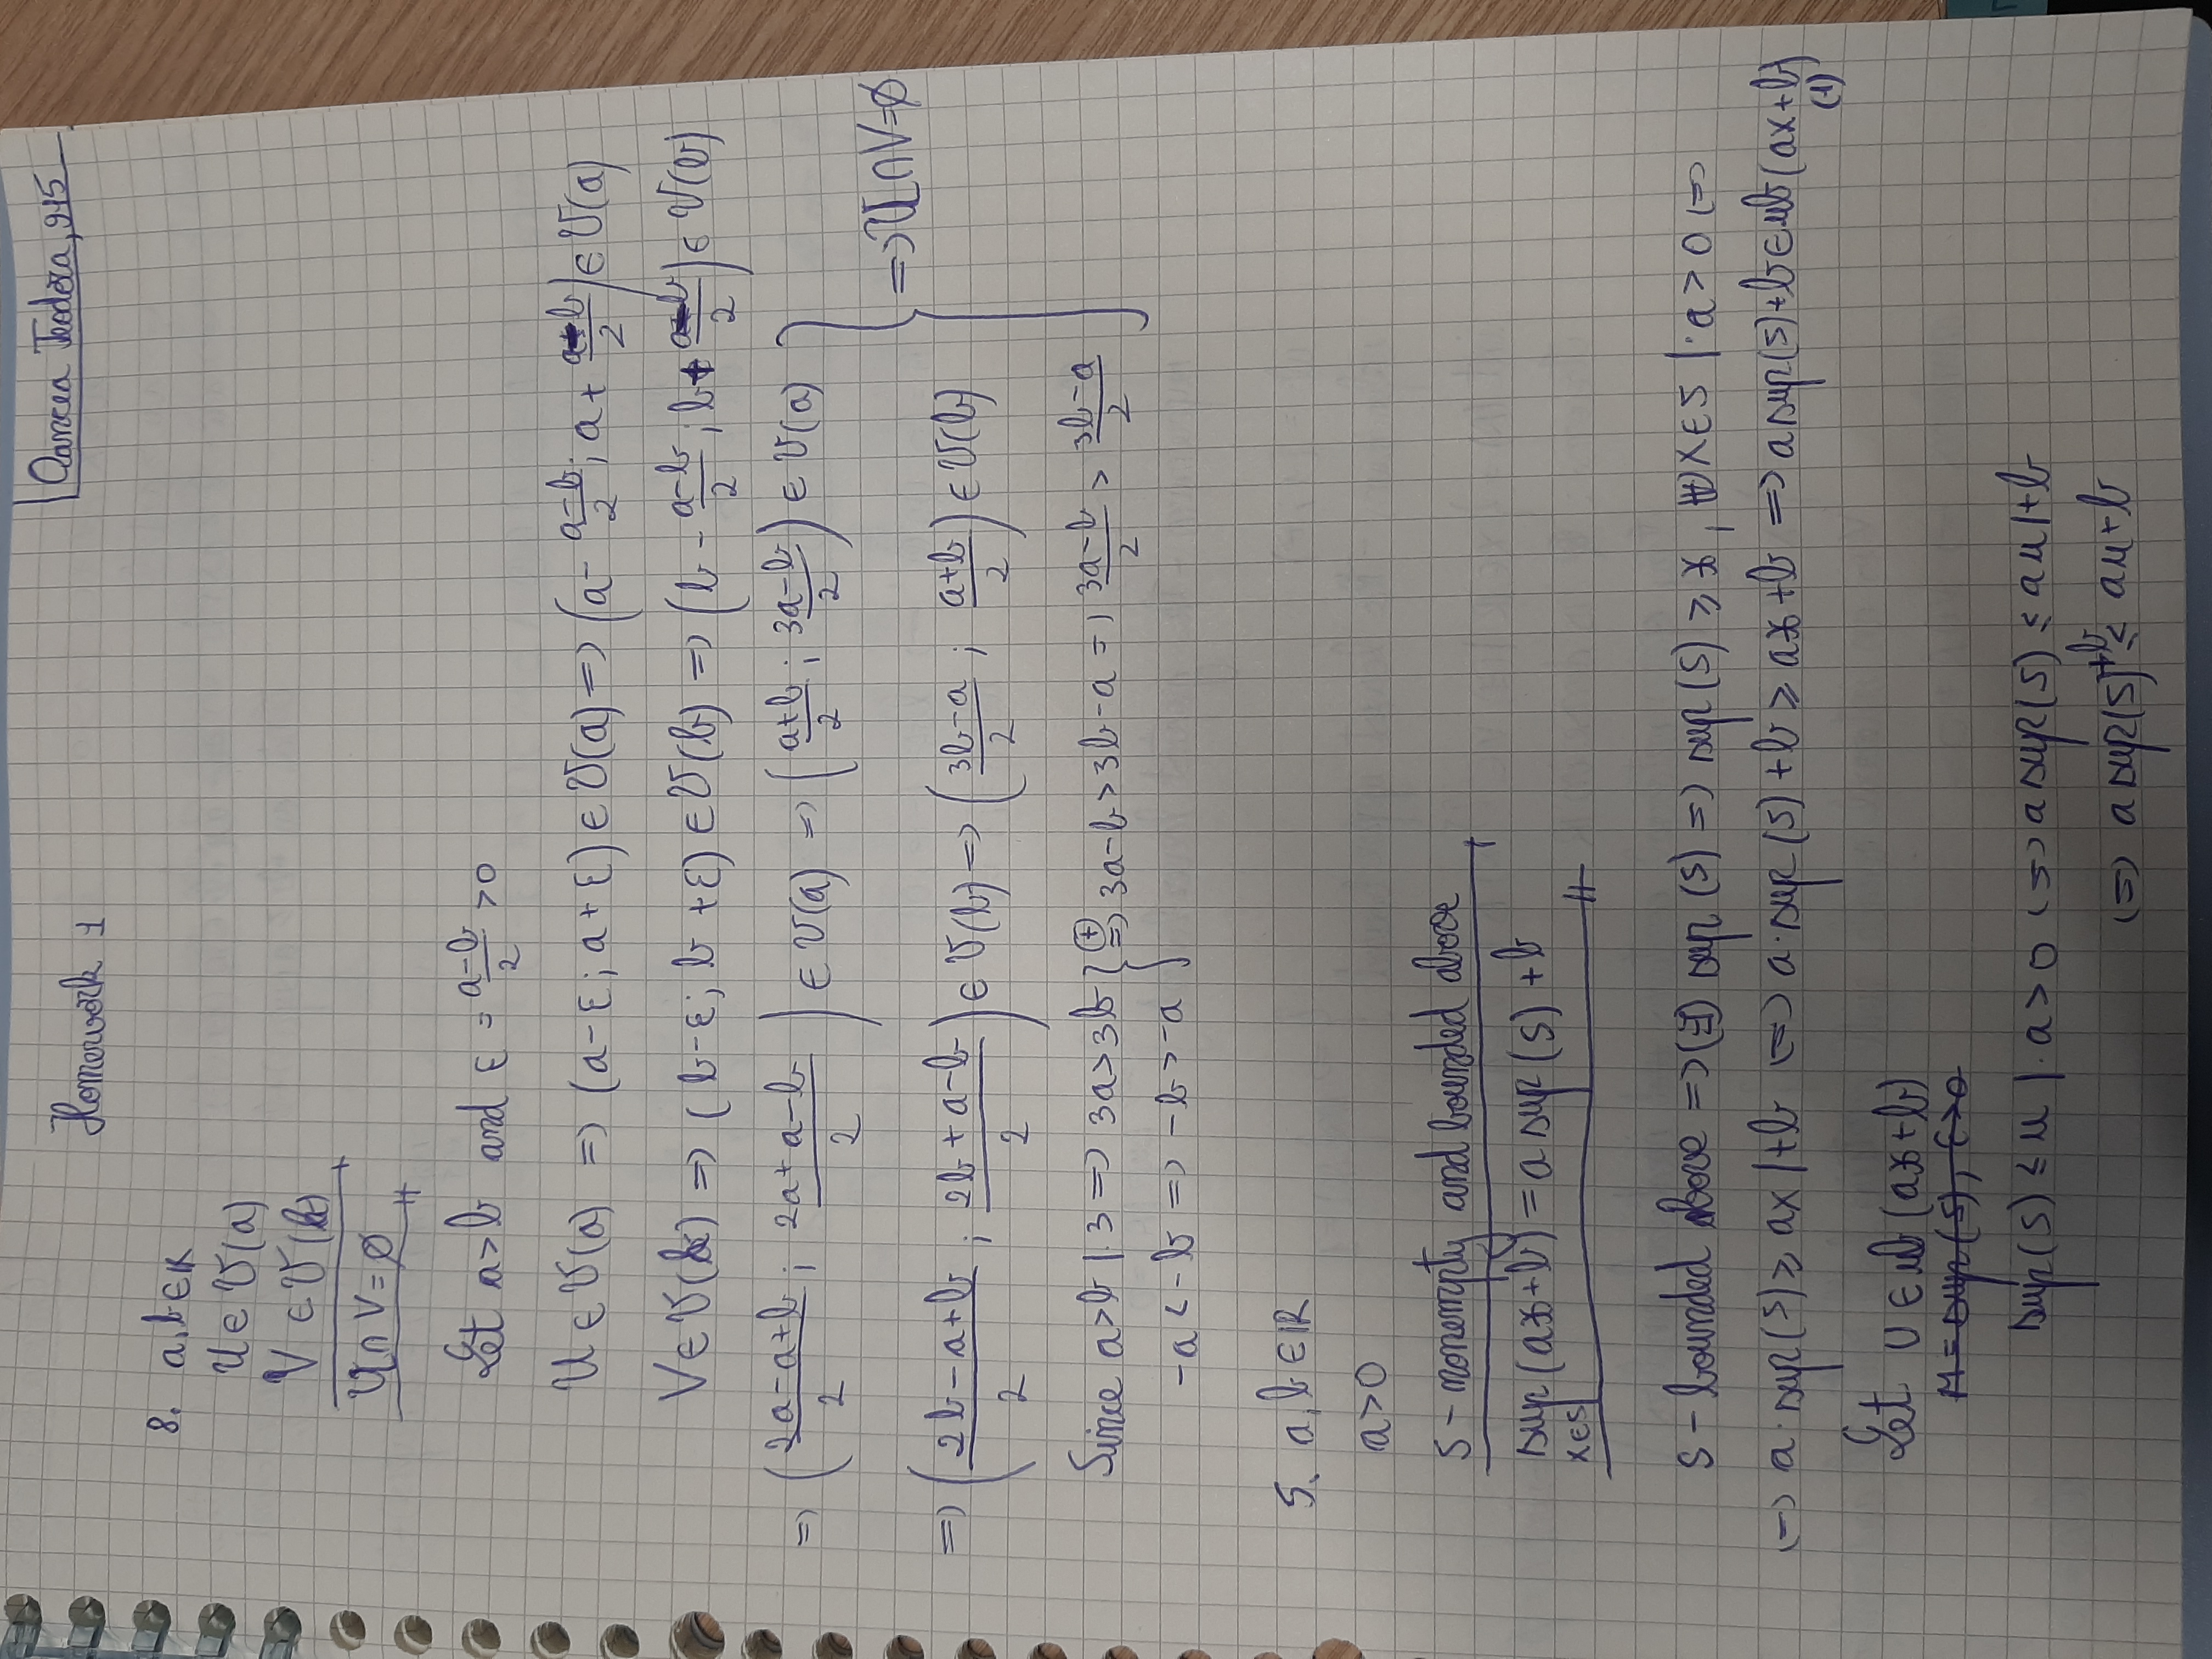 Oancea Teodora, 915
Homework 1
8. a, b ∈ ℝ
U ∈ V(a)
V ∈ V(b)
U ∩ V = ∅
Let a > b and ε = (a-b)/2 > 0
U ∈ V(a) => (a-ε; a+ε) ∈ V(a) => (a - (a-b)/2; a + (a-b)/2) ∈ V(a)
V ∈ V(b) => (b-ε; b+ε) ∈ V(b) => (b - (a-b)/2; b + (a-b)/2) ∈ V(b)
=> ((2a-a+b)/2; (2a+a-b)/2) ∈ V(a) => ((a+b)/2; (3a-b)/2) ∈ V(a)
=> U ∩ V = ∅
=> ((2b-a+b)/2; (2b+a-b)/2) ∈ V(b) => ((3b-a)/2; (a+b)/2) ∈ V(b)
Since a > b |·3 => 3a > 3b } (+) => 3a-b > 3b-a => (3a-b)/2 > (3b-a)/2
-a < -b => -b > -a
5. a, b ∈ ℝ
a > 0
S - nonempty and bounded above
sup (ax+b) = a sup (S) + b
x∈S
S - bounded above => (∃) sup (S) => sup (S) ≥ x, (∀) x ∈ S |· a > 0 <=>
<=> a · sup (S) ≥ ax | +b <=> a · sup (S) + b ≥ ax + b => a sup(S) + b ∈ ub (ax+b)
(1)
Let U ∈ ub (ax+b)
M = sup (S), ε > 0
sup (S) ≤ u |· a > 0 <=> a sup(S) ≤ au | +b
<=> a sup(S) +b ≤ au + b